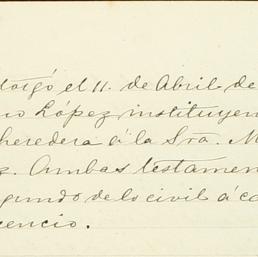 otorgó el 11. de Abril de
López instituyen
heredera á la Sra. M
z. Ambas testamen
gundo de lo civil á ca
cencio.